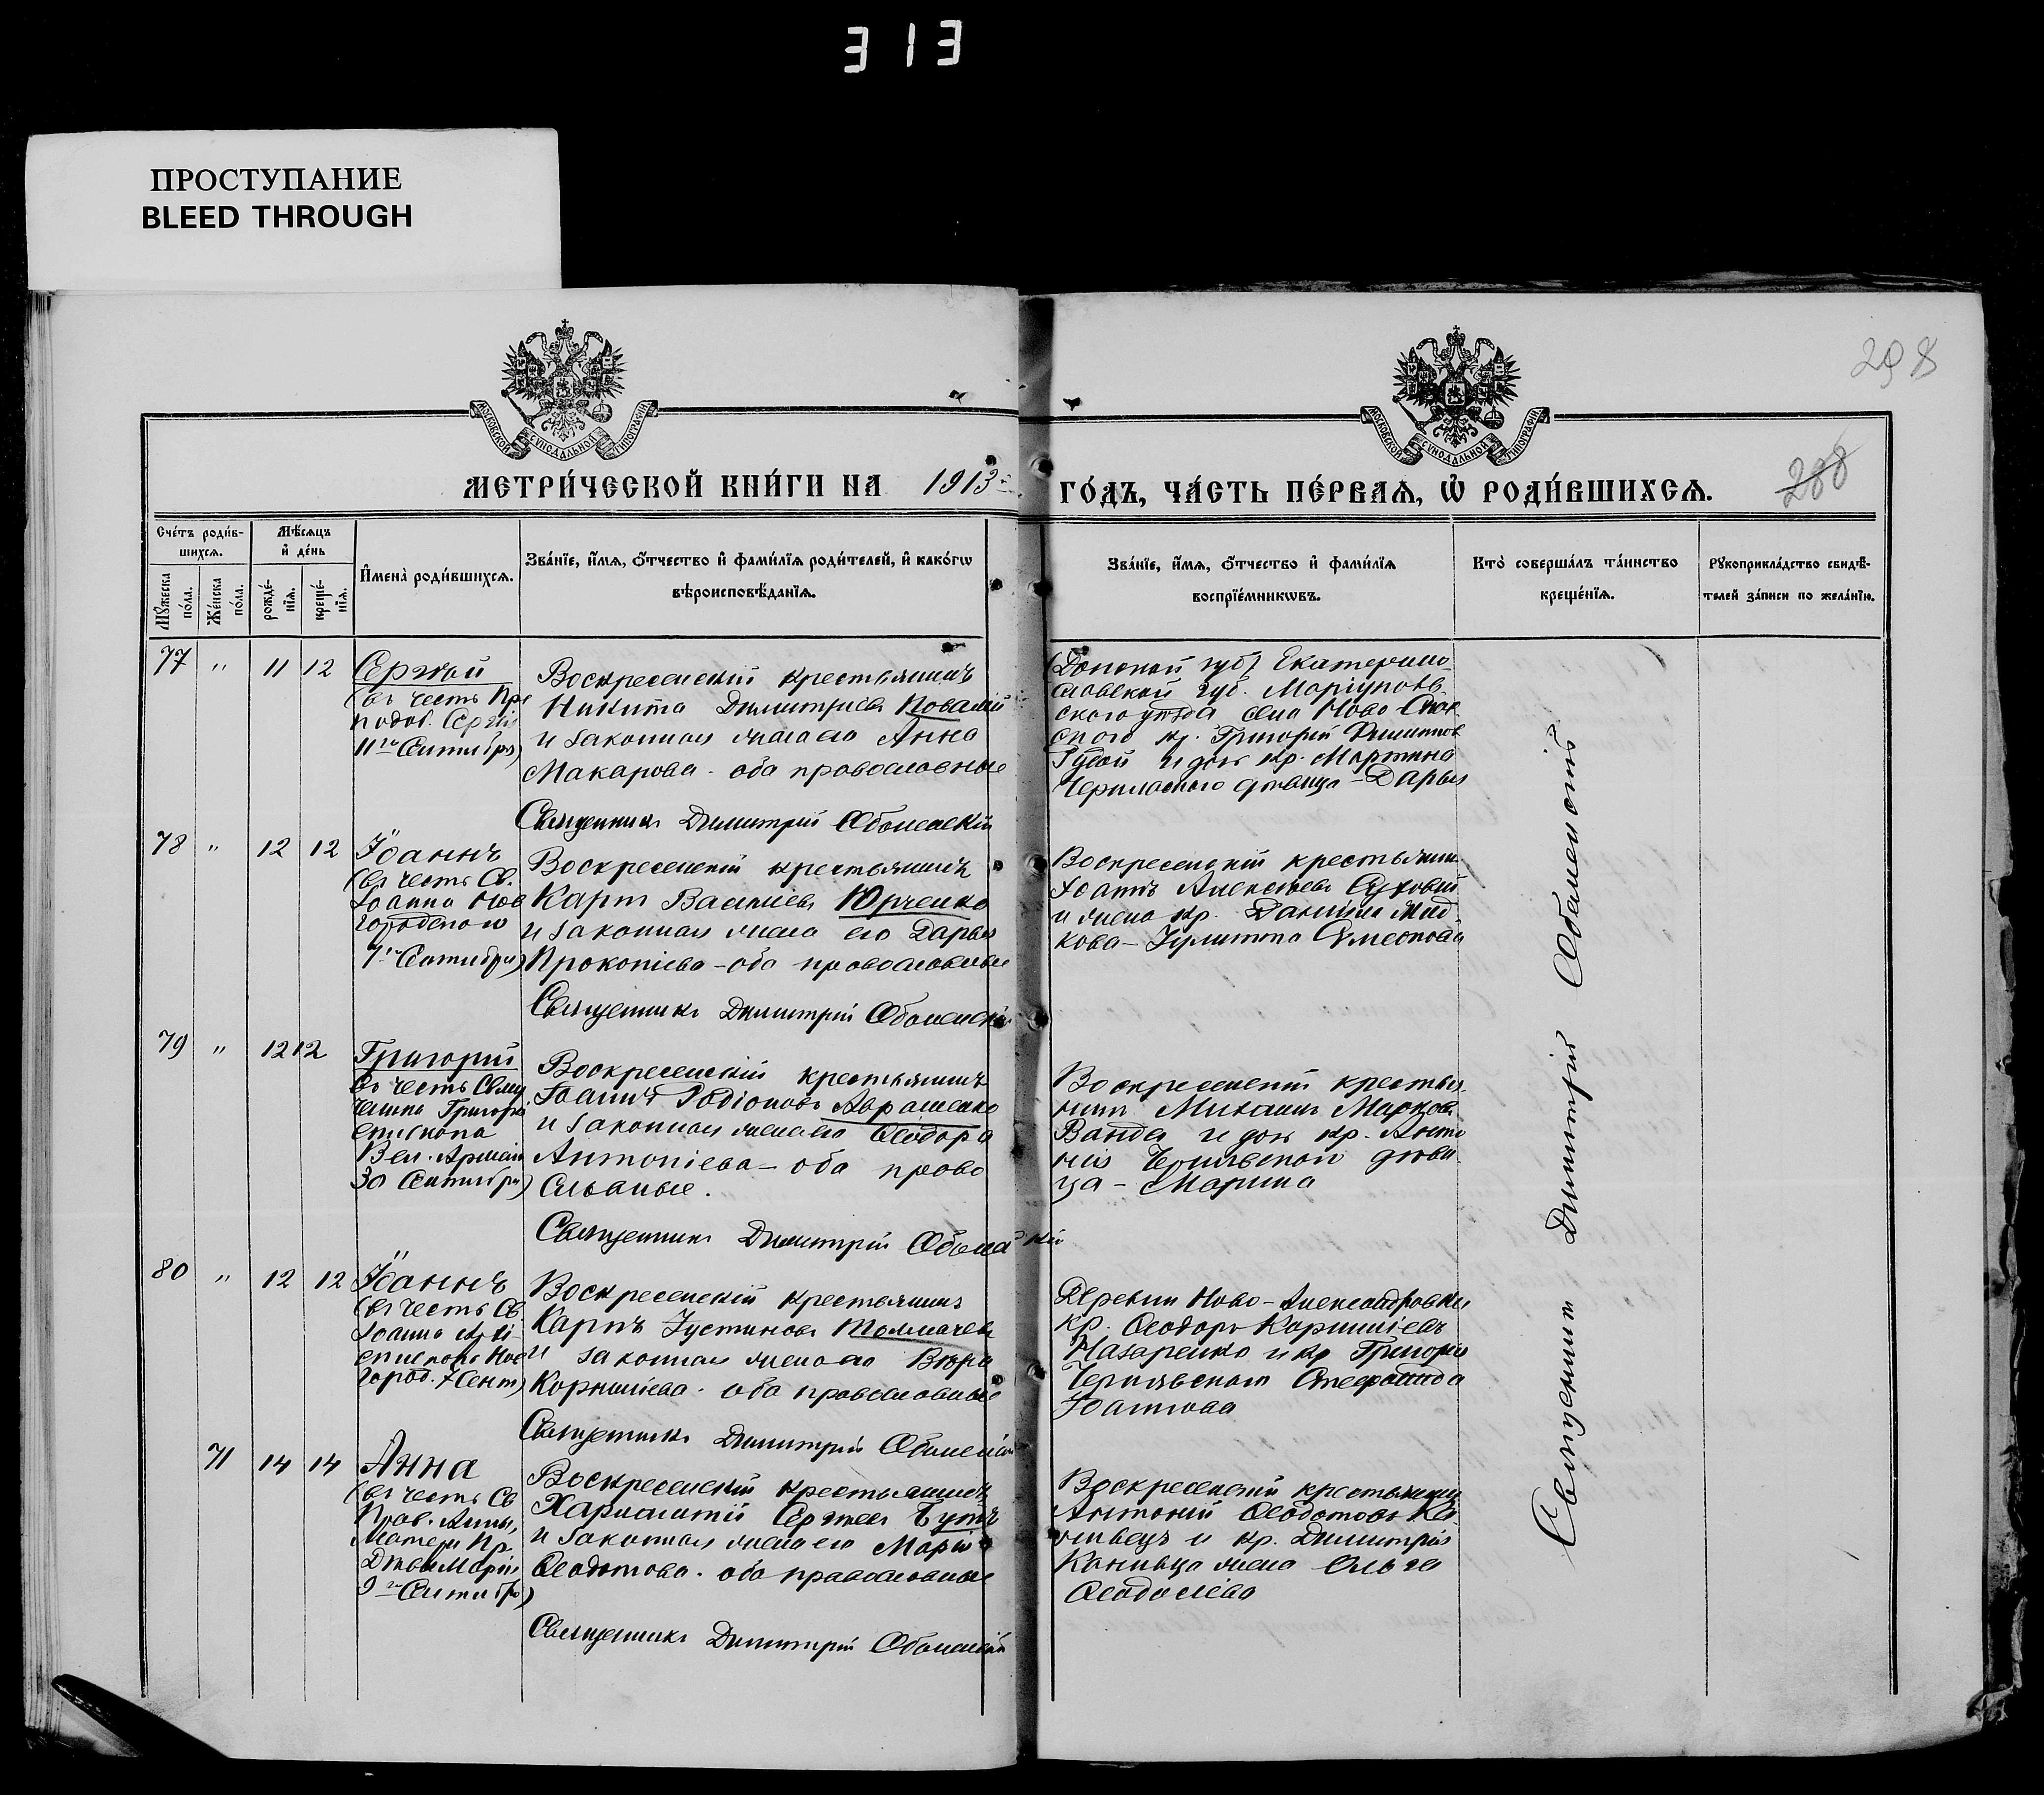 313
ПРОСТУПАНИЕ
BLEED THROUGH
298
288
МОСКОВСКОЙ СѴНОДАЛЬНОЙ ТИПОГРАФІИ
МОСКОВСКОЙ СѴНОДАЛЬНОЙ ТИПОГРАФІИ
МЕТРИ́ЧЕСКОЙ КНИ́ГИ НА 1913 ГО́ДЪ, ЧА́СТЬ ПЕ́РВАѦ, Ѡ҆ РОДИ́ВШИХСѦ.
Сче́тъ роди́в-
шихсѧ.
Мѣ́сѧцъ
и҆ де́нь
Мꙋ́жеска
по́ла.
Же́нска
по́ла.
рожде́-
нїѧ.
креще́-
нїѧ.
И҆мена̀ роди́вшихсѧ.
Зва́нїе, и҆́мѧ, ѻ҆́тчество и҆ фами́лїѧ роди́телей, и҆ како́гѡ
вѣроисповѣ́данїѧ.
Зва́нїе, и҆́мѧ, ѻ҆́тчество и҆ фами́лїѧ
воспрїе́мникѡвъ.
Кто̀ соверша́лъ та́инство
креще́нїѧ.
Рꙋкоприкла́дство свидѣ́-
телей за́писи по жела́нїю.
77 " 11 12
Сергій
(въ честь Пр
подоб. Сергія
11го Сентября)
Воскресенскій крестьянинъ
Никита Димитріевъ Ковалій
и законная жена его Анна
Макарова - оба православные
Священникъ Димитрій Оболенскій
(Донской губ) Екатерино-
славской губ. Маріуполь-
ского уѣзда села Ново-
кр. Григорій
и дочь кр. Мартина
дѣвица - Дарья
78 " 12 12
Іоаннъ
(въ честь Св.
Іоанна Нов
городскаго
7го Сентября)
Воскресенскій крестьянинъ
Карпъ Василіевъ Юрченко
и законная жена его Дарья
Прокопіева - оба православные
Священникъ Димитрій Оболенскій
Воскресенскій крестьянинъ
Іоаннъ Алексѣевъ Суховій
и жена кр. Даніила
кова - Улитта Симеонова
79 " 12 12
Григорій
въ честь Свящ
ченика Григорія
епископа
Вел. Арменіи
30 Сентября)
Воскресенскій крестьянинъ
Іоаннъ Родіоновъ Авраменко
и законная жена его Ѳеодора
Антоніева - оба право
славные.
Священникъ Димитрій Оболенскій
Воскресенскій крестья-
нинъ Михаилъ Марковъ
Ванда и дочь кр. Анто
нія Чернявской дѣви
ца - Марина
80 " 12 12
Іоаннъ
(въ честь Св.
Іоанна Архі-
епископа Нов
город. 7 Сент)
Воскресенскій крестьянинъ
Карпъ Іустиновъ Толмачевъ
и законная жена его Вѣра
Корниліева - оба православные
Священникъ Димитрій Оболенскій
Деревни Ново-Александровки
кр. Ѳеодоръ Корниліевъ
Назаренко и кр Григорія
Чернявскаго Стефанида
Іоаннова
71 14 14
Анна
(въ честь Св
Прав. Анны,
Матери Пр.
Дѣвы Маріи
9го Сентября)
Воскресенскій крестьянинъ
Харлампій Сергіевъ Бутъ
и законная жена его Марія
Ѳеодотова - оба православные
Священникъ Димитрій Оболенскій
Воскресенскій крестьянинъ
Антоній Ѳеодотовъ Ка
нивецъ и кр. Димитрія
Канивца жена Ольга
Ѳеодосіева
Священникъ Димитрій Оболенскій